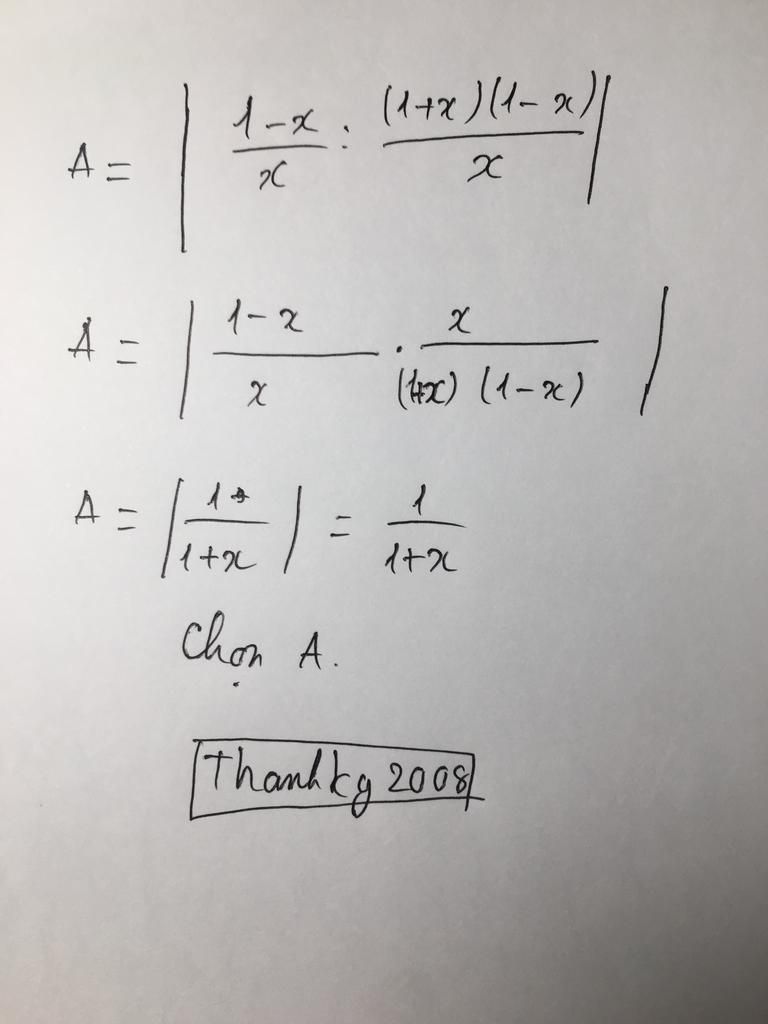 A = | (1-x)/x : ((1+x)(1-x))/x |
A = | (1-x)/x . x/((1+x)(1-x)) |
A = | 1/(1+x) | = 1/(1+x)
Chọn A.
Thanhkg 2008